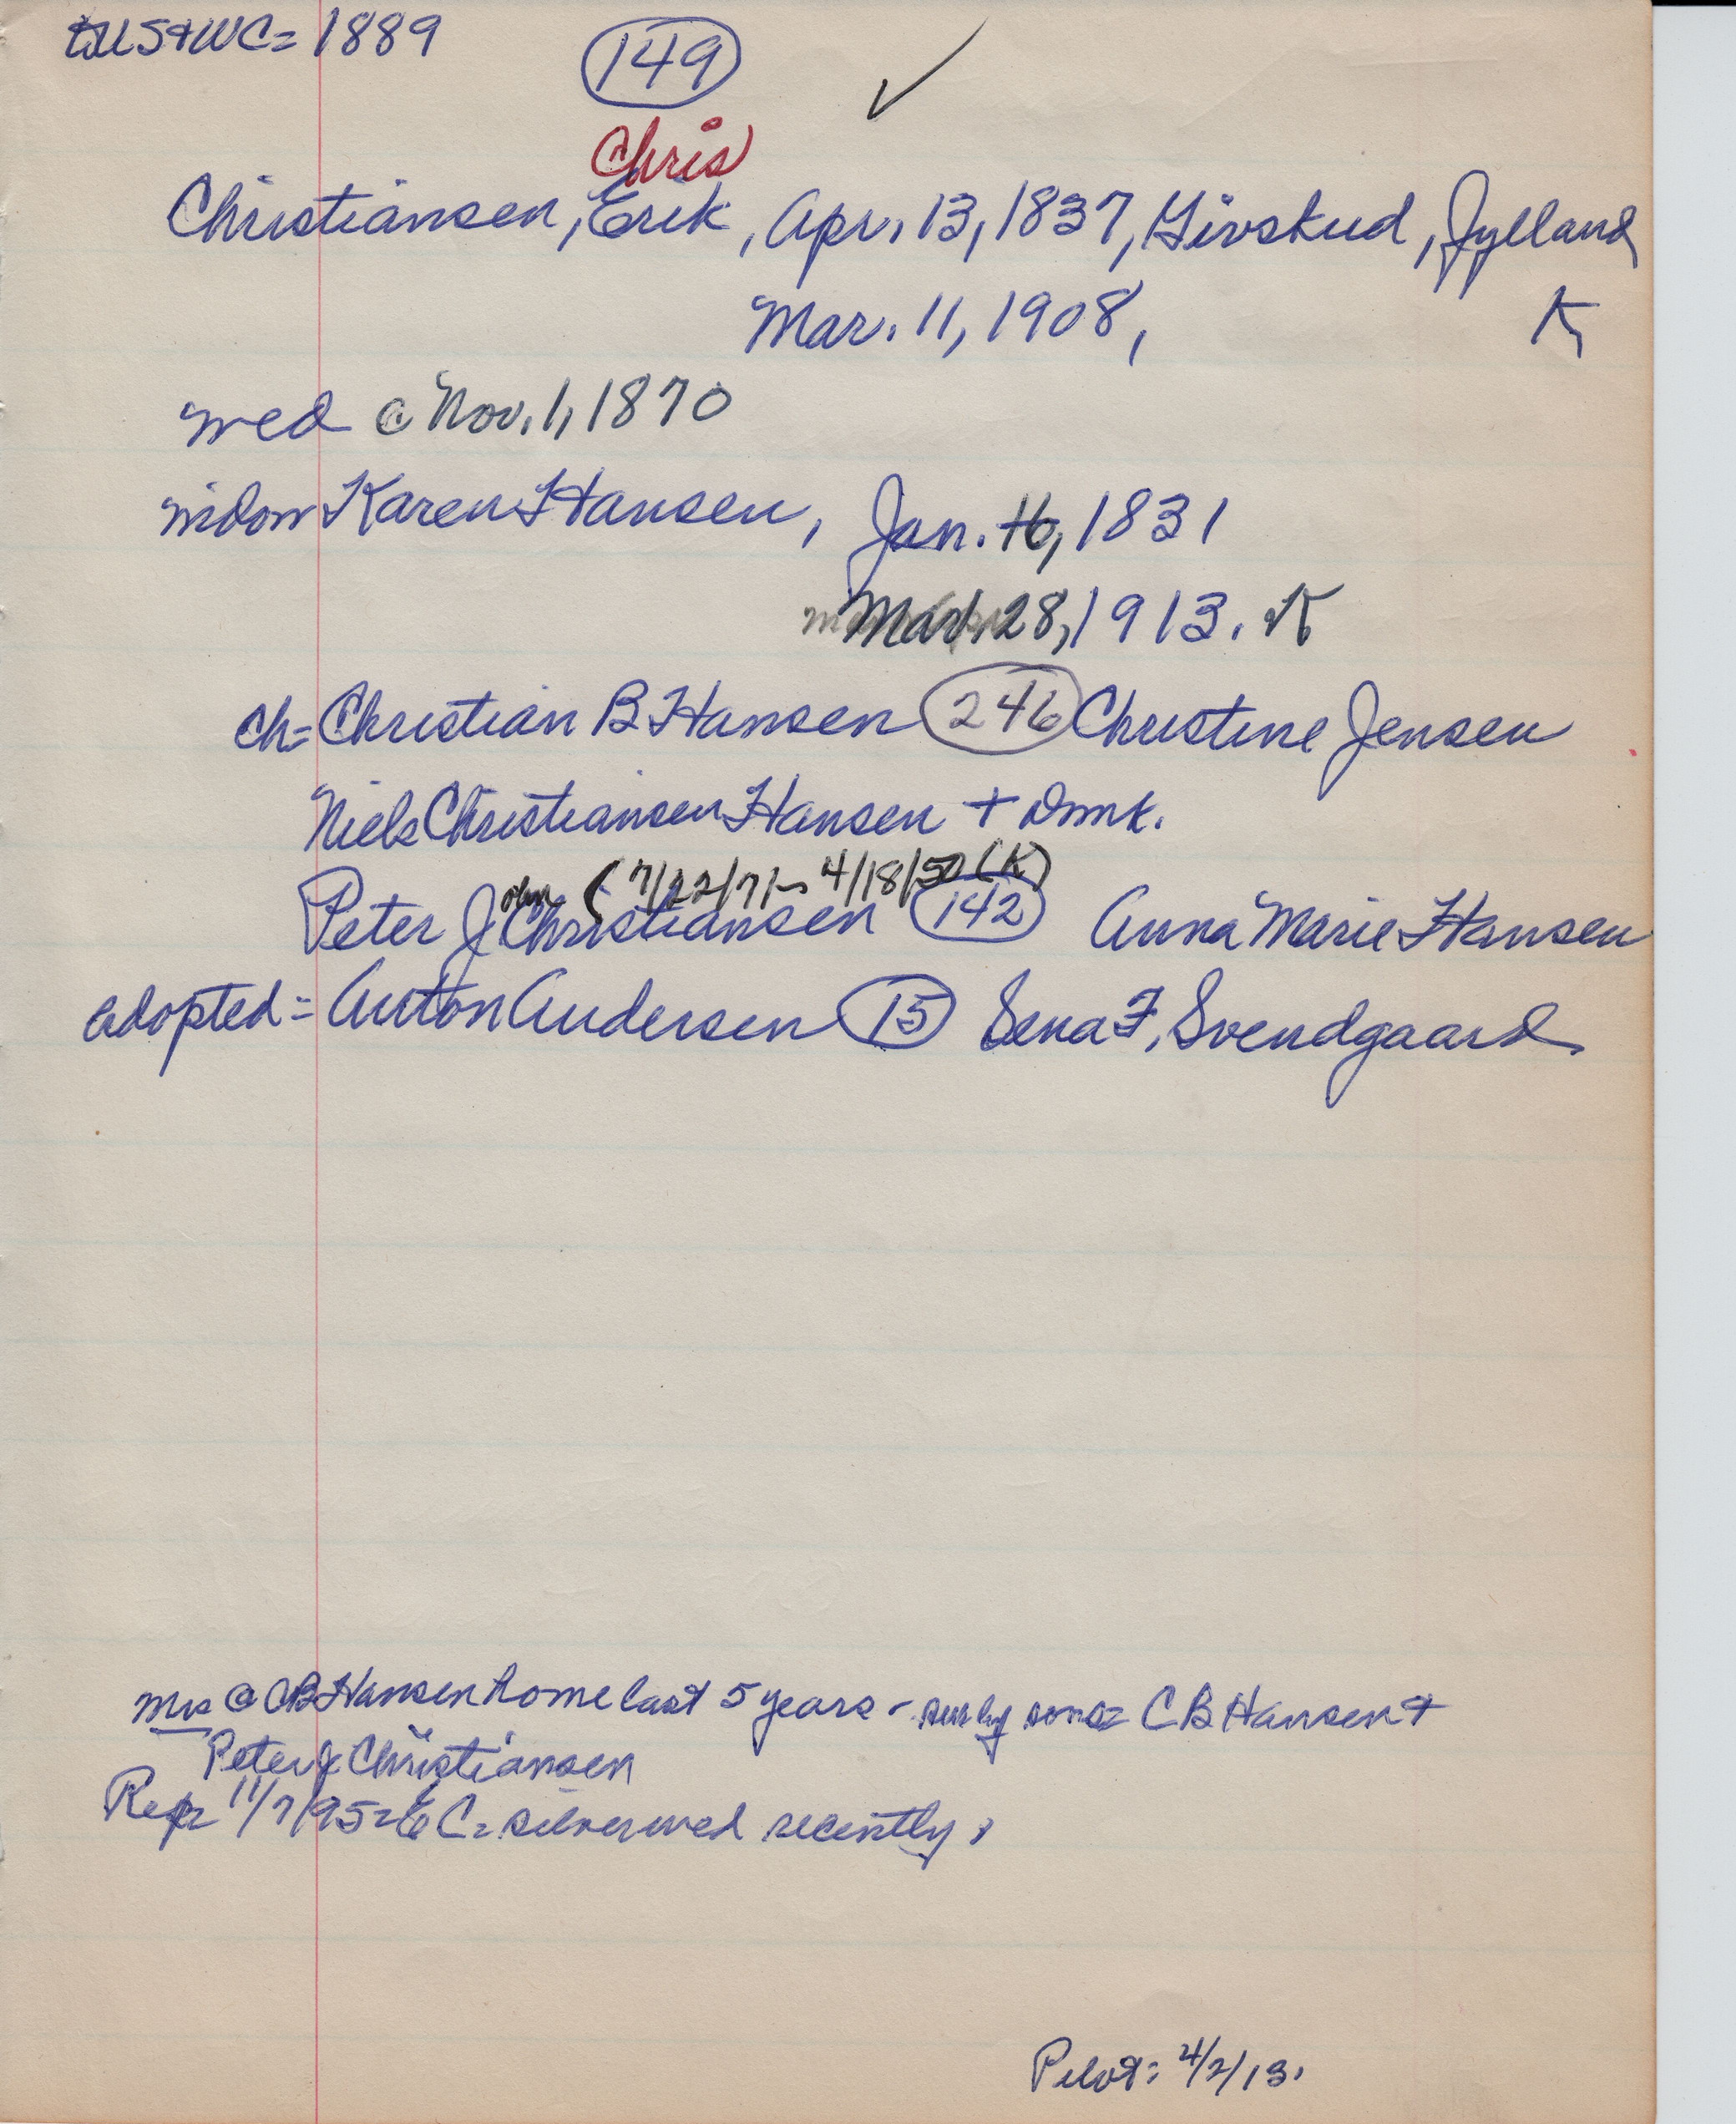 to US + WC = 1889
149
✓
Chris
Christiansen, Erik, Apr. 13, 1837, Givskud, Jylland
Mar. 11, 1908, K
wed @ Nov. 1, 1870
widow Karen Hansen, Jan. 16, 1831
Mar. 28, 1913. K
ch = Christian B Hansen 246 Christine Jensen
Niels Christiansen Hansen + Dnmk.
ohn (7/22/71 - 4/18/50 (K)
Peter J Christiansen 142 Anna Marie Hansen
adopted = Anton Andersen 15 Sena F. Svendgaard
Mrs @ CB Hansen home last 5 years - sur by sons = C B Hansen +
Peter J Christiansen
Rep = 11/7/95 = E C = silver wed recently.
Pilot: 4/2/13.